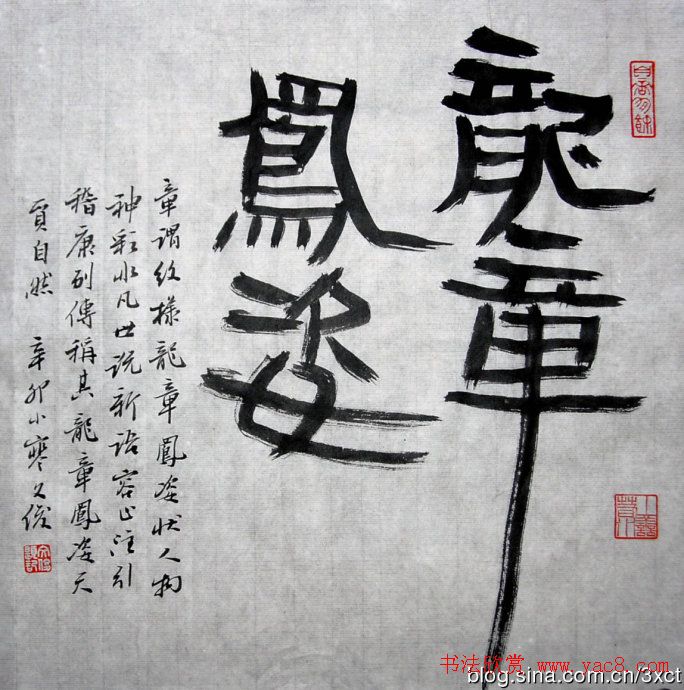 龍章
鳳姿
章謂紋樣龍章鳳姿狀人物
神彩不凡世說新語容止注引
嵇康別傳稱其龍章鳳姿天
質自然 辛卯小寒文俊
书法欣赏 www.yac8.com
blog.sina.com.cn/3xct